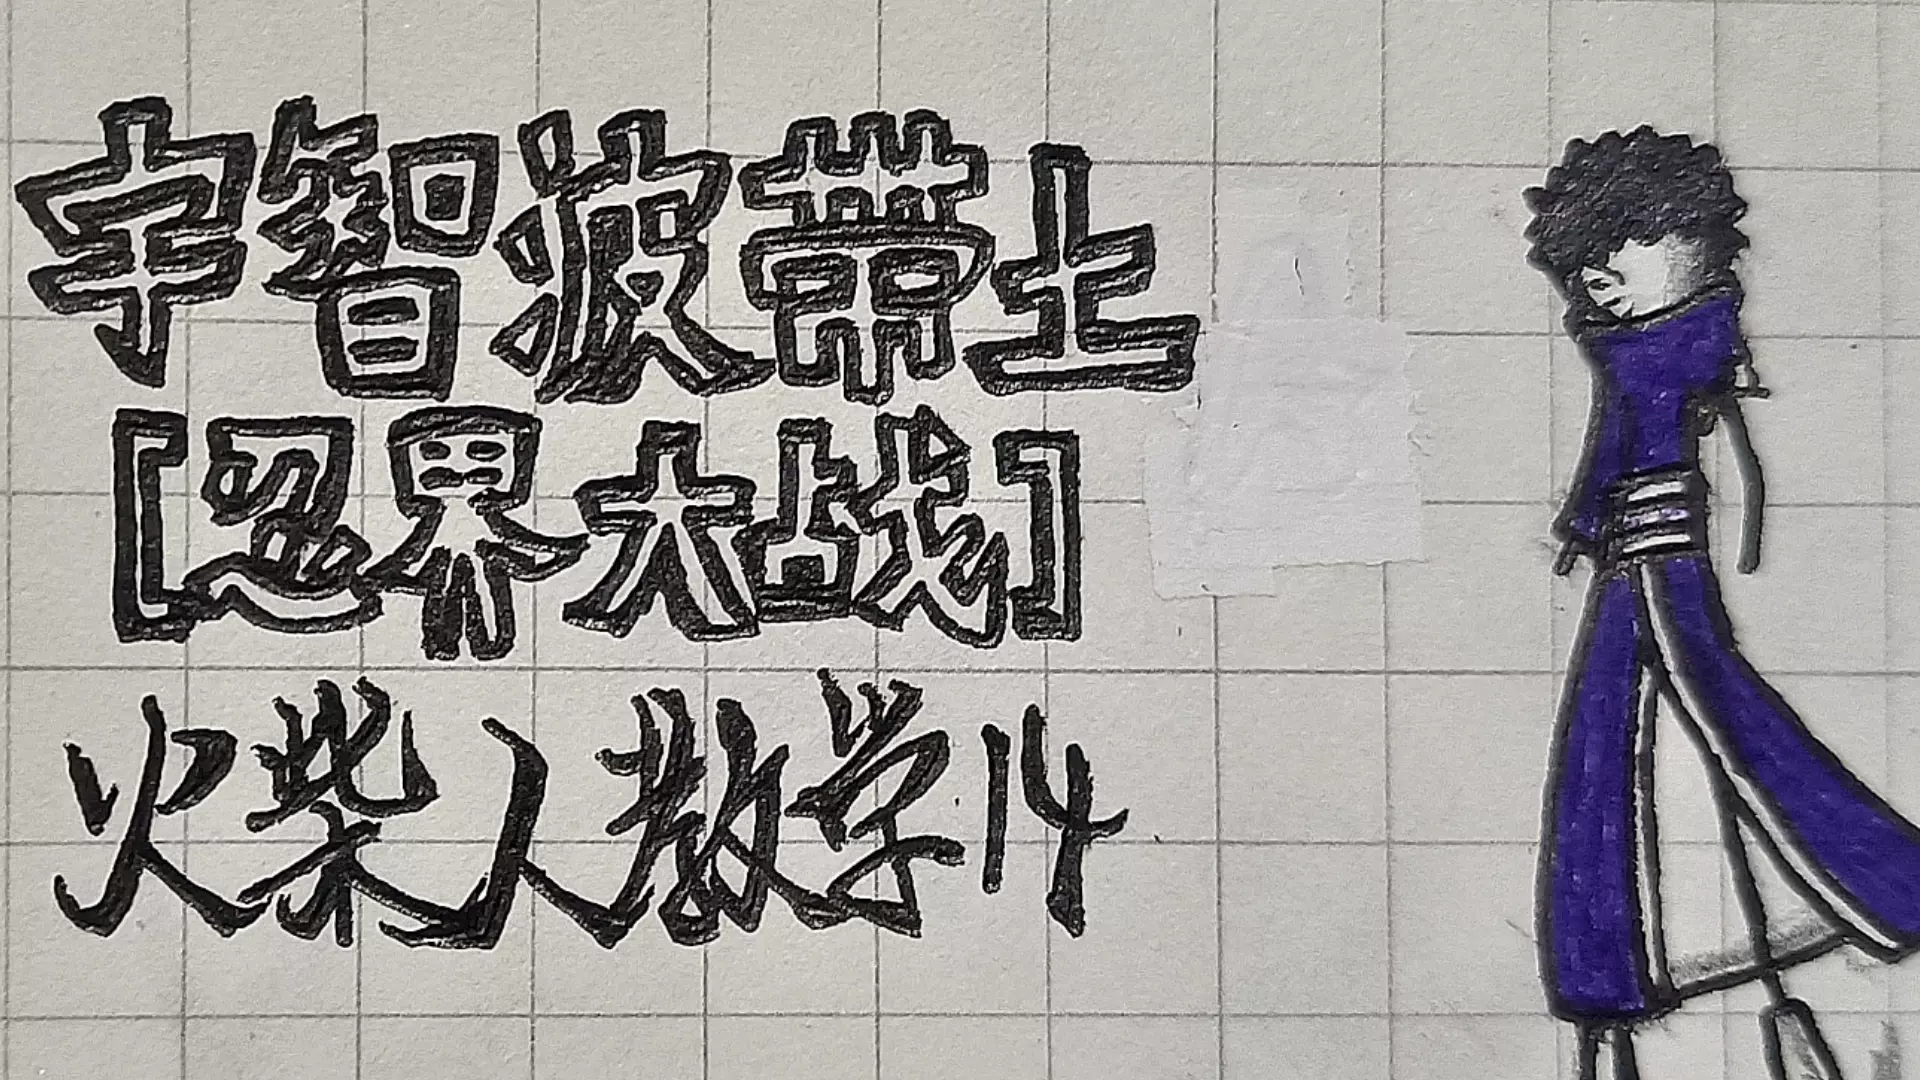 宇智波带土
[忍界大战]
火柴人教学14